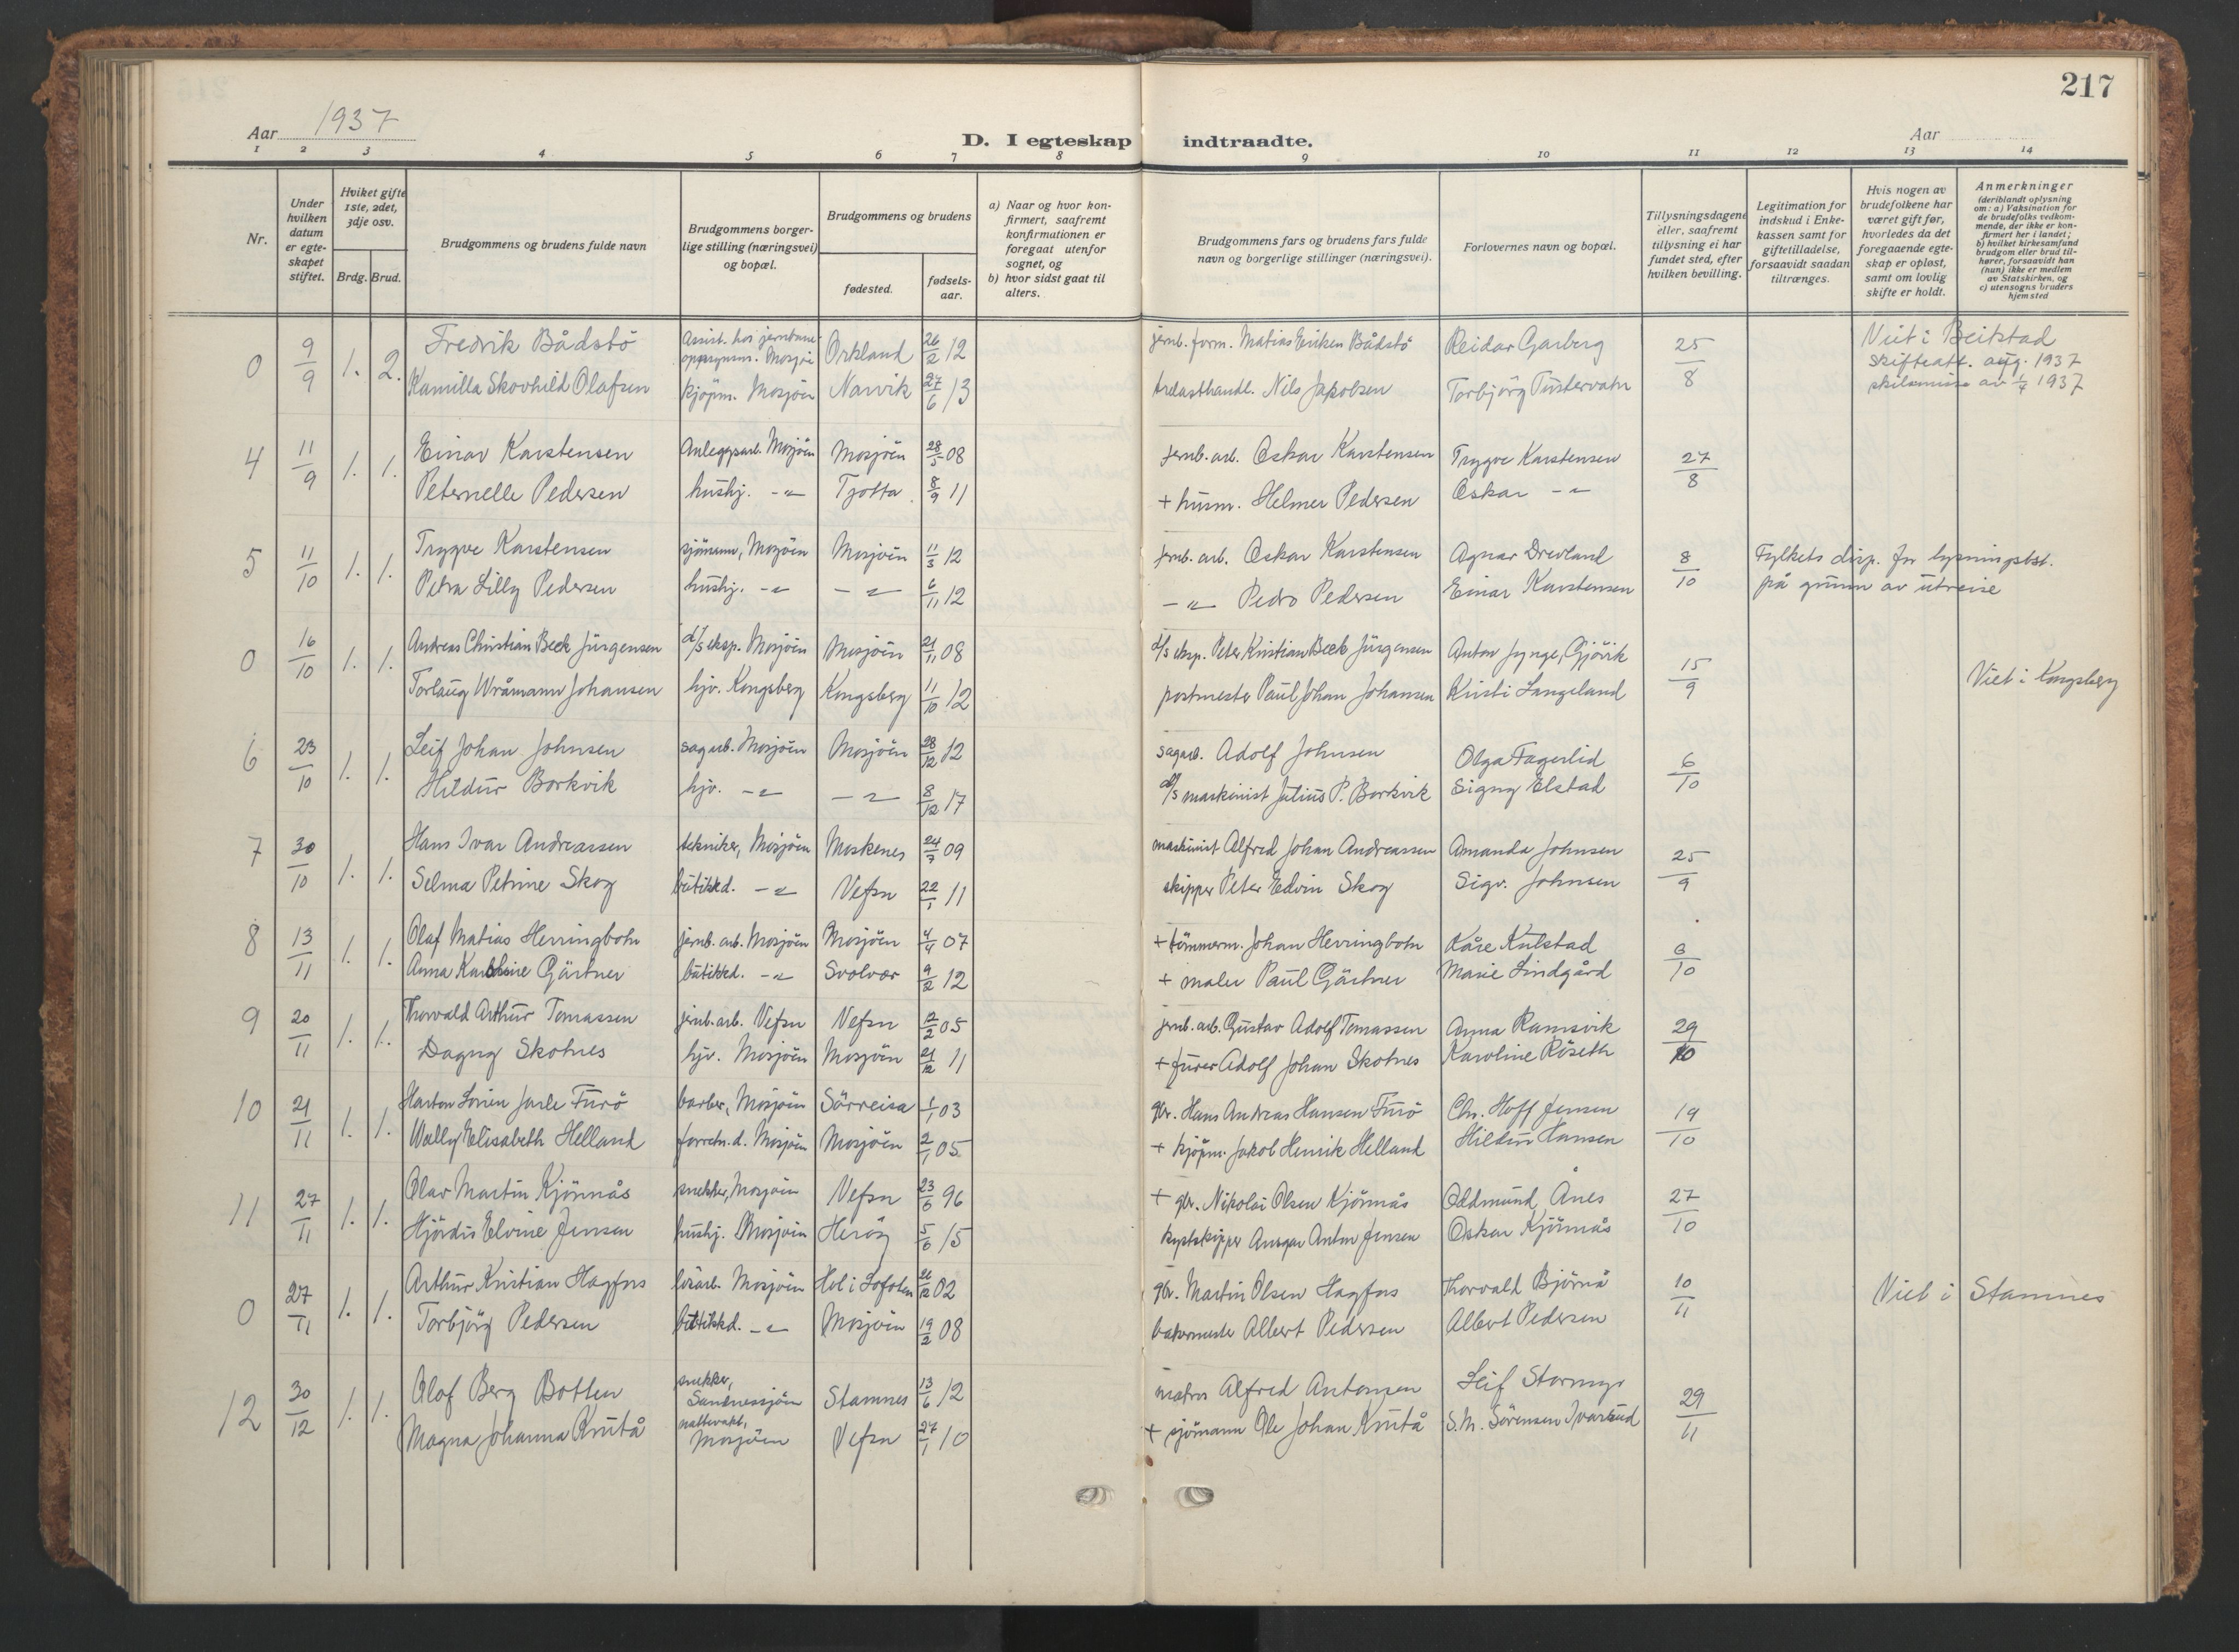 217
Aar 1937
D. I egteskap indtraadte.
Aar
1 2 3 4 5 6 7 8 9 10 11 12 13 14
Nr.
Under hvilken datum er egteskapet stiftet.
Hviket gifte 1ste, 2det, 3dje osv.
Brdg. Brud.
Brudgommens og brudens fulde navn
Brudgommens borgerlige stilling (næringsvei) og bopæl.
Brudgommens og brudens
fødested.
fødselsaar.
a) Naar og hvor konfirmert, saafremt konfirmationen er foregaat utenfor sognet, og
b) hvor sidst gaat til alters.
Brudgommens fars og brudens fars fulde navn og borgerlige stillinger (næringsvei).
Forlovernes navn og bopæl.
Tillysningsdagene eller, saafremt tillysning ei har fundet sted, efter hvilken bevilling.
Legitimation for indskud i Enkekassen samt for giftetilladelse, forsaavidt saadan tiltrænges.
Hvis nogen av brudefolkene har været gift før, hvorledes da det foregaaende egteskap er opløst, samt om lovlig skifte er holdt.
Anmerkninger (deriblandt oplysning om: a) Vaksination for de brudefolks vedkommende, der ikke er konfirmert her i landet; b) hvilket kirkesamfund brudgom eller brud tilhører, forsaavidt han (hun) ikke er medlem av Statskirken, og c) utensogns bruders hjemsted
0 9/9 1. 2. Fredrik Bådstö Assist. hos jernbane- Mosjöen Orkland 26/2 12 jernb. form. Matias Eriksen Bådstö Reidar Garberg 25/8 Viet i Beitstad
Kamilla Skovhild Olafsen kjöpm. Mosjöen Narvik 27/6 13 trelasthandl. Nils Jakobsen Torbjörg Tustervatn skifteatt. aug. 1937
skilsmisse av 1/4 1937
4 11/9 1. 1. Einar Karstensen Anleggsarb. Mosjöen Mosjöen 28/5 08 jernb. arb. Oskar Karstensen Trygve Karstensen 27/8
Peternelle Pedersen hushj. -"- Tjötta 8/9 11 + husm. Helmer Pedersen Oskar -"-
5 11/10 1. 1. Trygve Karstensen sjömann, Mosjöen Mosjöen 11/3 12 jernb. arb. Oskar Karstensen Agnar Drevland 8/10 Fylkets disp. for lysningstst.
Petra Lilly Pedersen hushj. -"- -"- 6/11 12 -"- Pedro Pedersen Einar Karstensen på grunn av utreise
0 16/10 1. 1. Andreas Christian Beck Jürgensen d/s eksp. Mosjöen Mosjöen 21/11 08 d/s eksp. Peter Kristian Beck Jürgensen Anton Jynge, Gjövik 15/9 Viet i Kongsberg
Torlaug Wråmann Johansen hjv. Kongsberg Kongsberg 11/10 12 postmester Paul Johan Johansen Kristi Langeland
6 23/10 1. 1. Leif Johan Johnsen sagarb. Mosjöen Mosjöen 28/12 12 sagarb. Adolf Johnsen Olga Fagerlid 6/10
Hildur Borkvik hjv. -"- -"- 8/12 17 d/s maskinist Julius P. Borkvik Signy Elstad
7 30/10 1. 1. Hans Ivar Andreassen tekniker, Mosjöen Moskenes 24/7 09 maskinist Alfred Johan Andreassen Amanda Johnsen 25/9
Selma Petrine Skog butikkd. -"- Vefsn 22/1 11 skipper Peter Edvin Skog Sigv. Johnsen
8 13/11 1. 1. Olaf Matias Herringbotn jernb. arb. Mosjöen Mosjöen 4/4 07 + tömmerm. Johan Herringbotn Kåre Kulstad 6/10
Anna Gärtner butikkd. -"- Svolvær 9/2 12 + maler Paul Gärtner Marie Lindgård
9 20/11 1. 1. Thorvald Arthur Tomassen jernb. arb. Vefsn Vefsn 2/2 05 jernb. arb. Gustav Adolf Tomassen Anna Ramsvik 29/10
Dagny Skotnes hjv. Mosjöen Mosjöen 21/12 11 + furer Adolf Johan Skotnes Karoline Röseth
10 21/11 1. 1. Jarle Furö barber, Mosjöen Sörreisa 1/1 03 gbr. Hans Andreas Hansen Furö Chr. Hoff Jensen 19/10
Wally Elisabeth Helland forretn.d. Mosjöen Mosjöen 2/1 05 + kjöpm. Jakob Henrik Helland Hildur Hansen
11 27/11 1. 1. Olav Martin Kjönnås snekker, Mosjöen Vefsn 23/6 96 + gbr. Nikolai Olsen Kjönnås Oddmund Ånes 27/10
Hjördis Elvine Jensen hushj. Mosjöen Heröy 5/6 15 kystskipper Ansgar Anton Jensen Oskar Kjönnås
0 27/11 1. 1. Arthur Kristian Hagfors lösarb. Mosjöen Hol i Lofoten 26/12 02 gbr. Martin Olsen Hagfors Thorvald Björnå 10/11 Viet i Stamnes
Torbjörg Pedersen butikkd. -"- Mosjöen 19/2 08 bakermester Albert Pedersen Albert Pedersen
12 30/12 1. 1. Olaf Berg Botten snekker, Sandnessjöen Stamnes 13/6 12 Alfred Antonsen Leif Stormyr 29/11
Magna Johanna Knutå nattevakt, Mosjöen Vefsn 27/1 10 + sjömann Ole Johan Knutå S.M. Sörensen